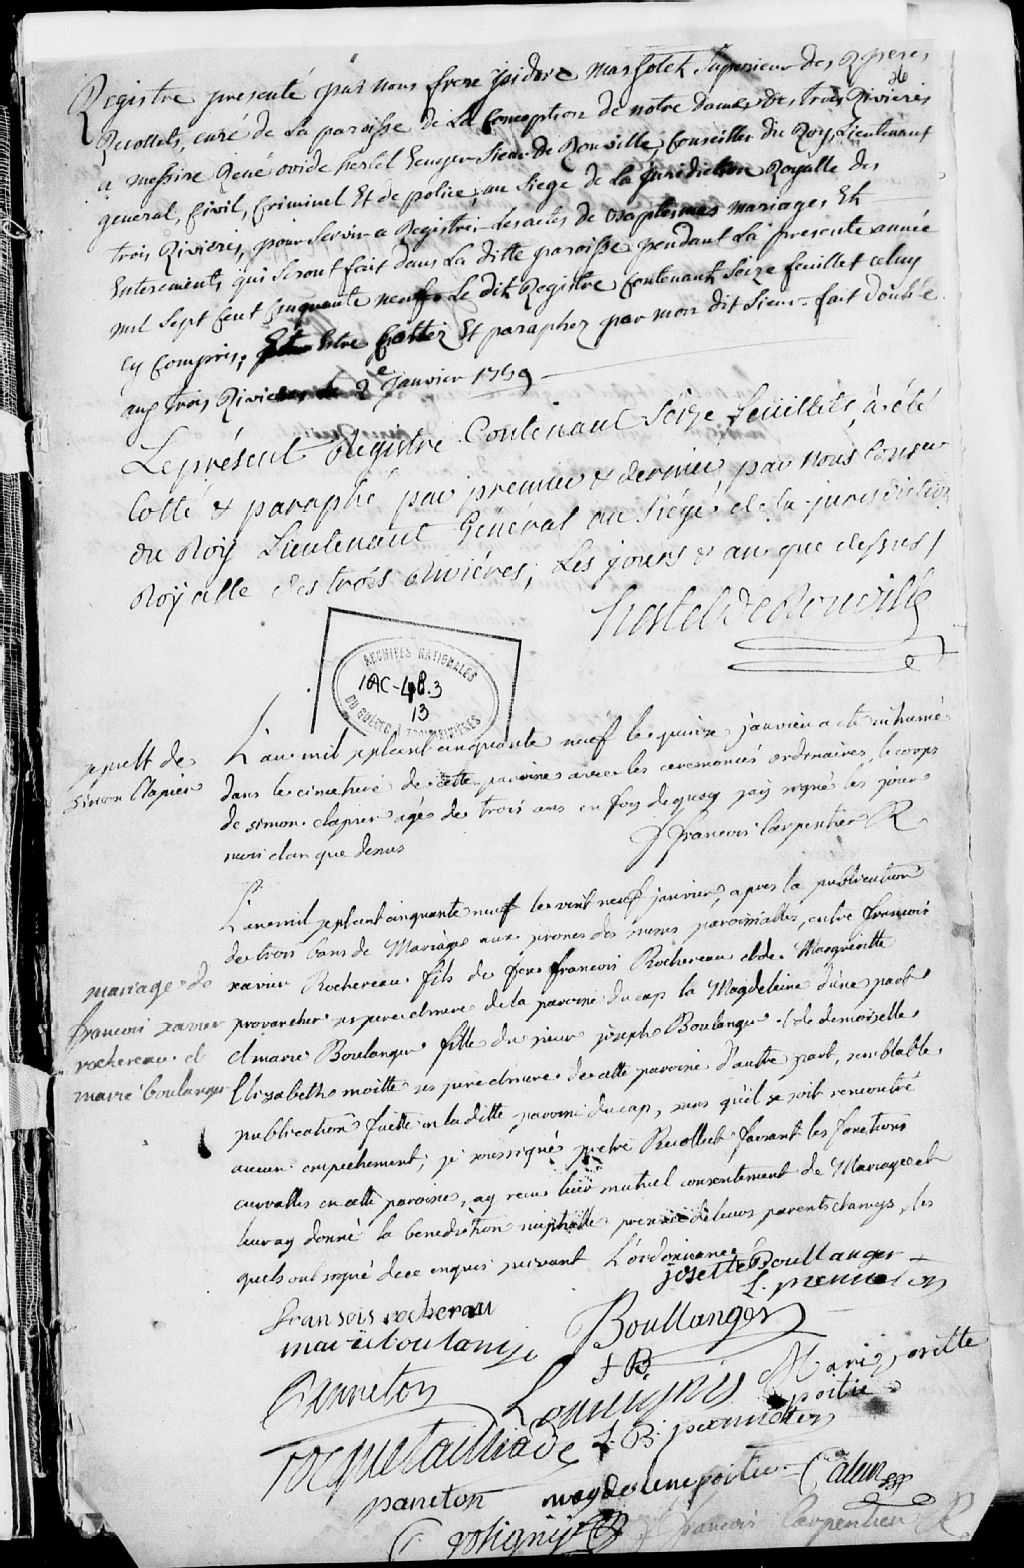 Registre presenté par nous frere Isidore Marsolet Superieur des R. peres
Recollets, curé de La paroisse de La Conception de notre dame des trois Rivieres
a messire René ovide hertel Ecuyer Sieur de Rouville, Conseiller du Roy, Lieutenant
general, Civil, Criminel Et de police, au Siege de La Jurisdiction Royalle des
trois Rivieres, pour Servir a Registrer des actes de Baptesmes mariages, Et
Enterements qui Seront fait dans La ditte paroisse pendant La presente année
mil Sept Cent Cinquante neuf, Le dit Registre Contenant Seize feuillet celuy
cy Compris, Estre Cottez Et paraphez par mon dit Sieur. fait double
aux trois Rivieres le 2e Janvier 1759
Le présent Registre Contenant Séize feuillets, à été
Cotté & paraphé par premier & dernier par nous Conser
du Roÿ Lieutenant Général au Siége de la jurisdiction
Roÿalle des trois Riviéres, Les jours & an que dessus /
hertel de Rouville
ARCHIVES NATIONALES
1AC-48.3
13
DU QUÉBEC À TROIS-RIVIÈRES
sepult de
simon Clapier
L'an mil sept cent cinquante neuf le quinze janvier a été inhumé
dans le cimetiere de cette paroisse avec les ceremonies ordinaires, le corps
de simon clapier agés de trois ans en foy de quoy j'ay signé les jour
mois et an que dessus
f francois Carpentier R
L'an mil sept cent cinquante neuf le vint neuf janvier, apres la publication
de trois bans de Mariage aux prones des messes paroissialles, entre francois
mariage de
francois xavier
rochereau et
marie boulanger
xavier Rochereau fils de feu francois Rochereau et de Margueritte
provancher ses pere et mere de la paroisse du cap la Magdeleine d'une part
et marie Boulanger fille du sieur joseph Boulanger et de demoiselle
Elisabeth moitte ses pere et mere de cette paroisse d'autre part, semblable
publication faitte en laditte paroisse du cap, sans qu'il se soit rencontré
aucun empechement, je soussigné pretre Recollect faisant les fonctions
curialles en cette paroisse, ay recu leur mutuel consentement de Mariage et
leur ay donné la benediction nuptialle presence de leurs parents et amys, les
quels ont signé de ce enquis suivant L'ordonnance
josette Boullanger
fransois rocherau
marie boulange
Boullanger
J B
panneton
Marie josette
poitie
tocquetailliade
J. B. panneton
paneton
magdelene poitier
f francois Carpentier R